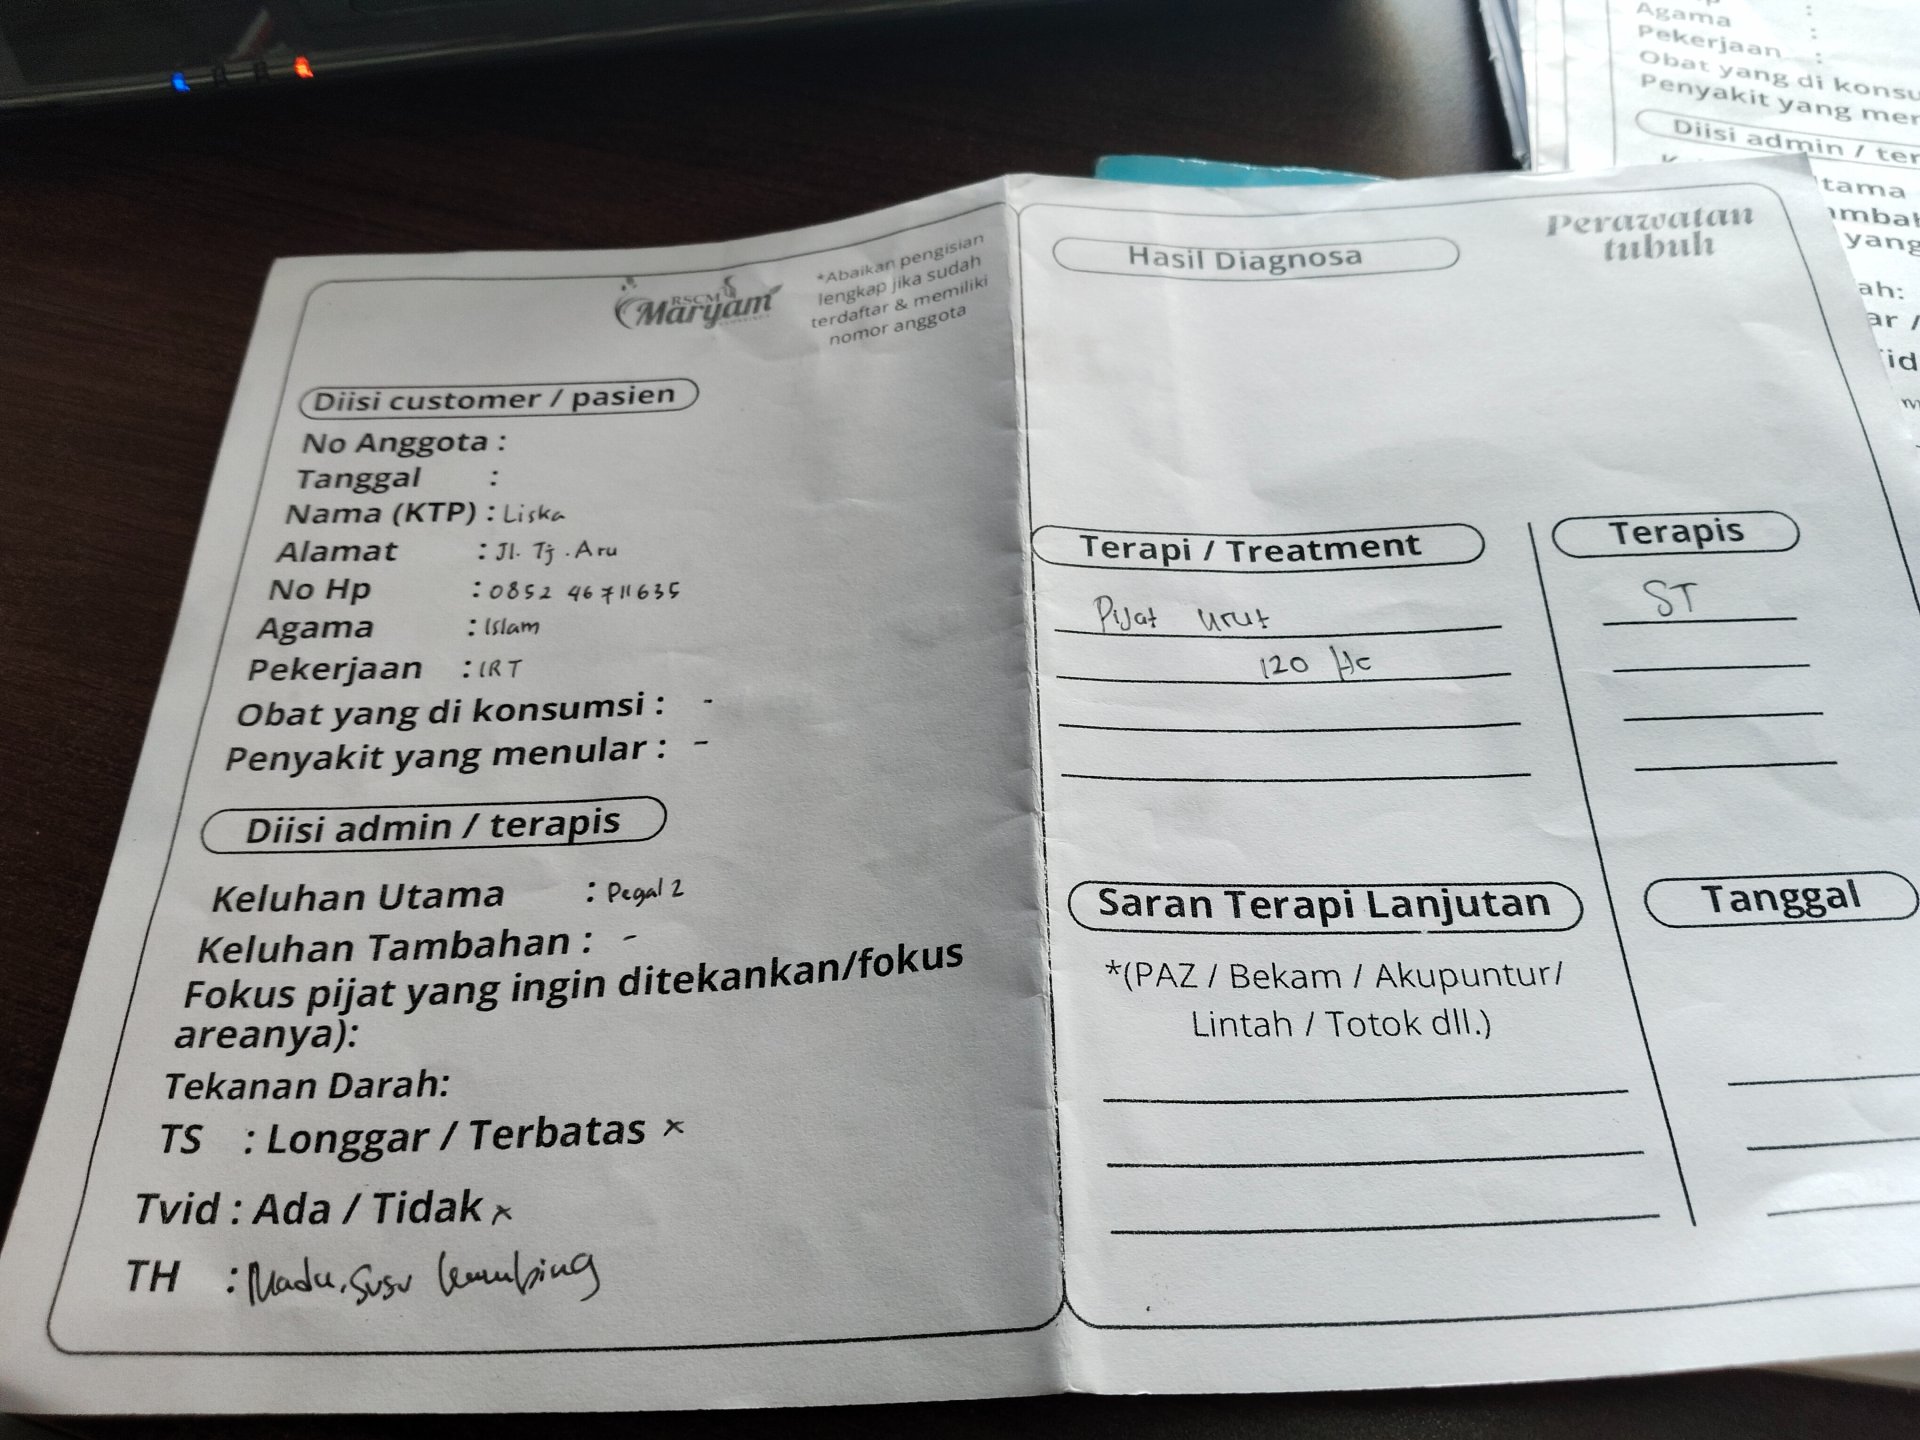 RSCM
Maryam
*Abaikan pengisian
lengkap jika sudah
terdaftar & memiliki
nomor anggota
Diisi customer / pasien
No Anggota :
Tanggal :
Nama (KTP) : Liska
Alamat : Jl. Tj. Aru
No Hp : 0852 46711635
Agama : Islam
Pekerjaan : IRT
Obat yang di konsumsi : -
Penyakit yang menular : -
Diisi admin / terapis
Keluhan Utama : Pegal 2
Keluhan Tambahan : -
Fokus pijat yang ingin ditekankan/fokus
areanya):
Tekanan Darah:
TS : Longgar / Terbatas x
Tvid : Ada / Tidak x
TH : Madu, Susu kambing
Perawatan
tubuh
Hasil Diagnosa
Terapi / Treatment
Pijat urut
120 Hc
Terapis
ST
Saran Terapi Lanjutan
*(PAZ / Bekam / Akupuntur/
Lintah / Totok dll.)
Tanggal
Agama :
Pekerjaan :
Obat yang di konsu
Penyakit yang mer
Diisi admin / ter
tama
ambah
yang
ah:
ar /